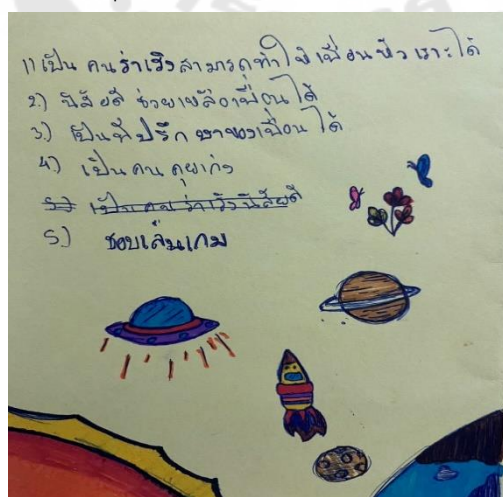 1) เป็น คนร่าเริงสามารถทำให้เพื่อนหัวเราะได้
2.) นิสัยดี ช่วยเหลือเพื่อนได้
3.) เป็นที่ปรึกษาของเพื่อนได้
4.) เป็นคนคุยเก่ง
5.) เป็นคนร่าเริงนิสัยดี
5.) ชอบเล่นเกม